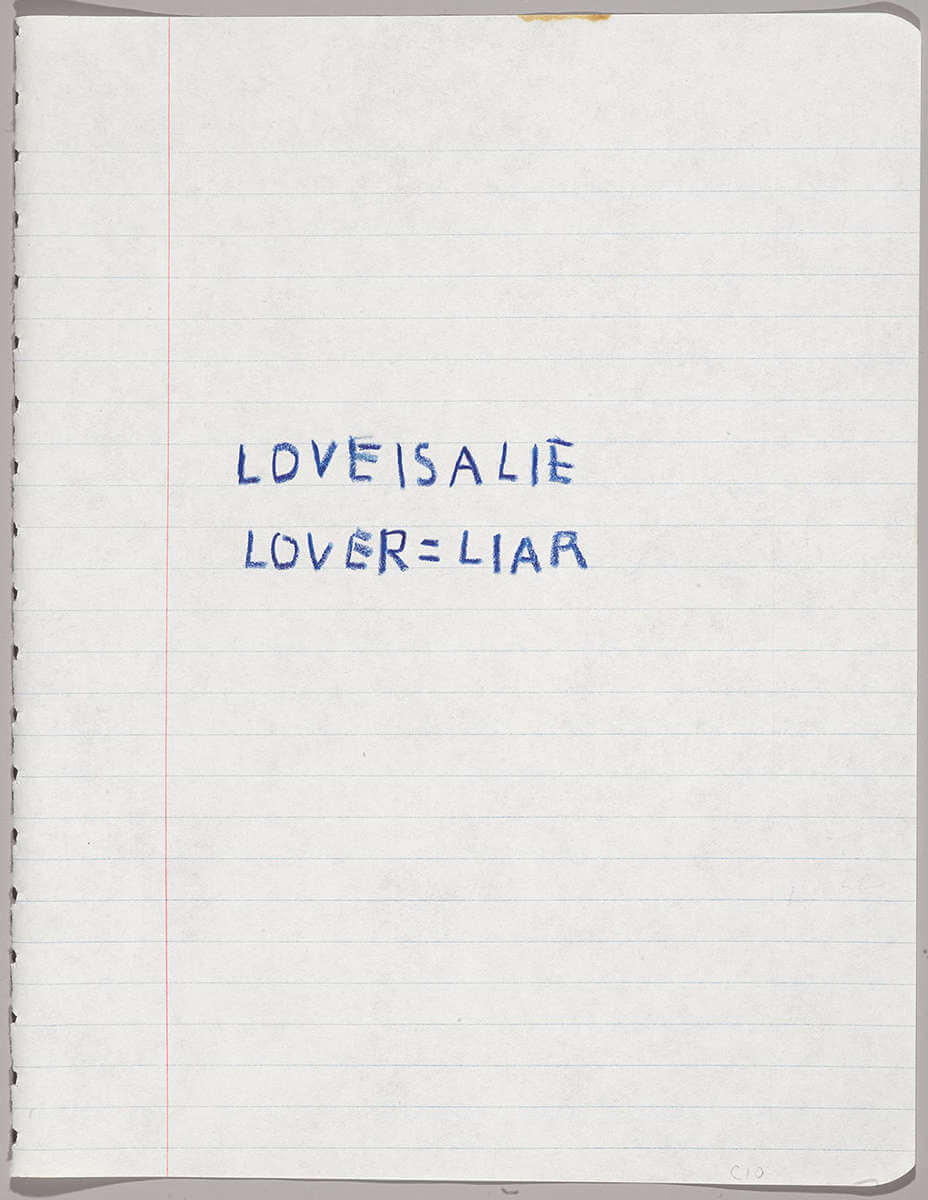 LOVE IS A LIE
LOVER = LIAR
C10